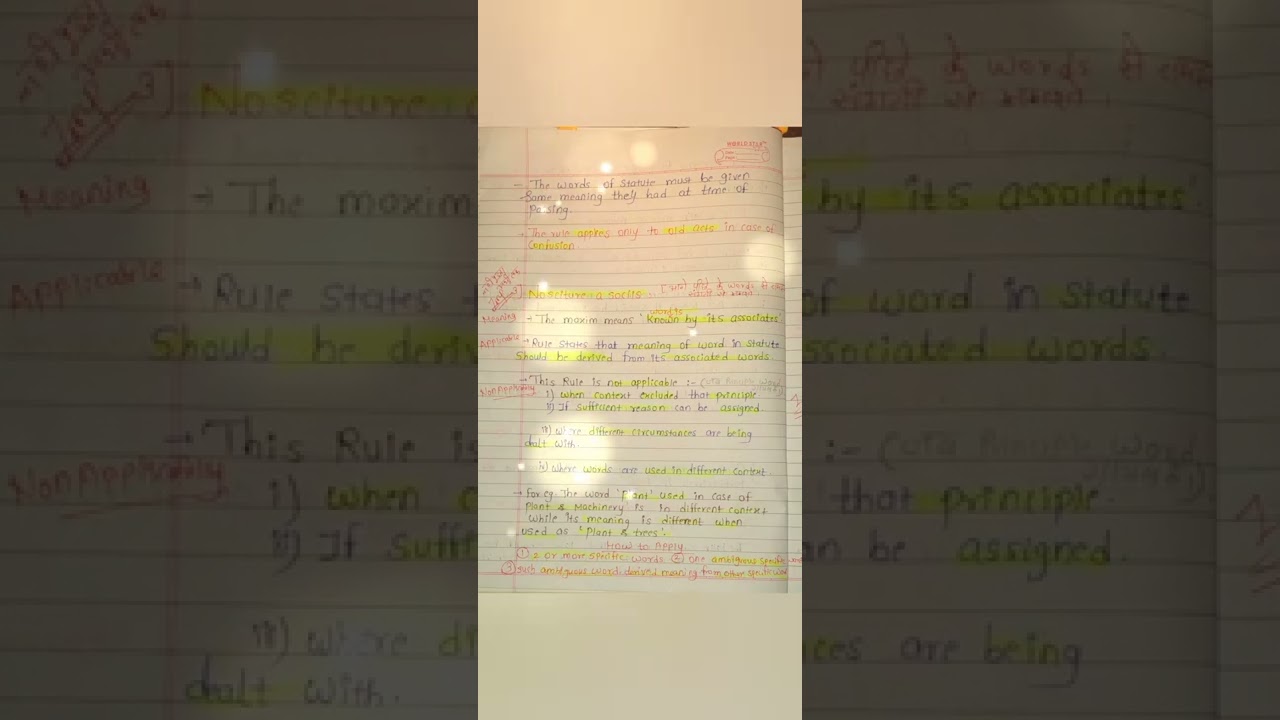 WORLD STAR
- The words of Statute must be given
Same meaning they had at time of
Passing.
→ The rule applies only to old acts in case of
Confusion.
Nosciture a Sociis
Meaning → The maxim means 'Known by its associates'
words
Applicable → Rule States that meaning of word in Statute
Should be derived from its associated words.
→ This Rule is not applicable :-
Non Applicability i) when context excluded that principle
ii) If Sufficient reason can be assigned.
iii) where different circumstances are being
dealt With.
iv) Where words are used in different context.
→ for eg. The word 'Plant' used in case of
Plant & Machinery is in different context
while its meaning is different when
used as 'Plant & trees'.
How to Apply
① 2 or more specific words ② one ambiguous specific
③ Such ambiguous word derived meaning from other specific word